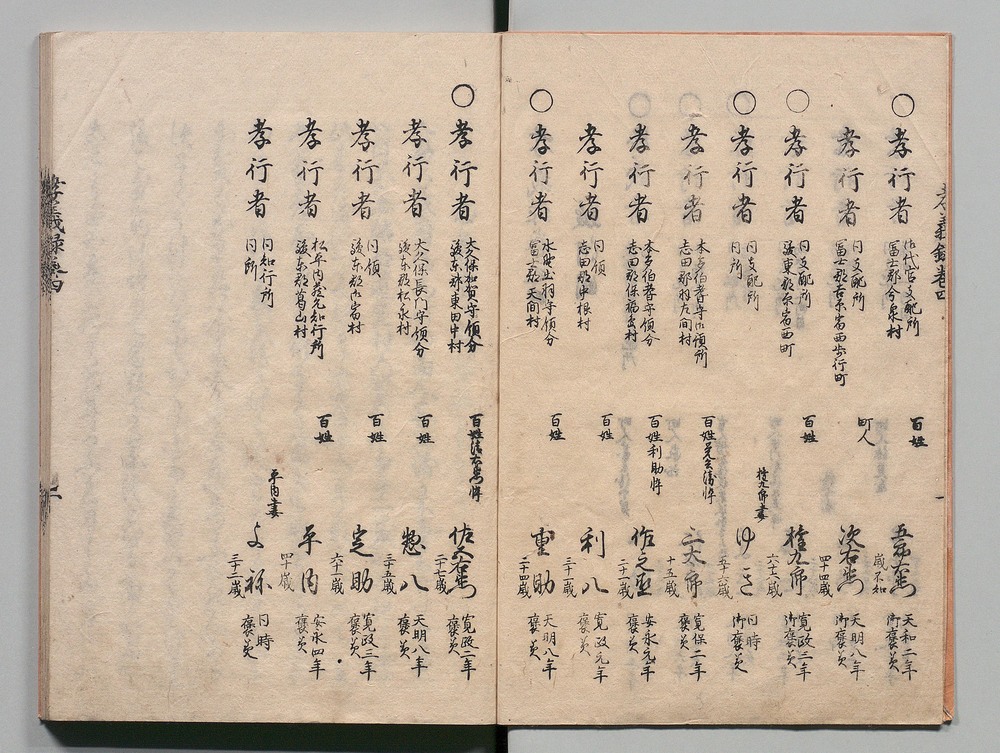 孝義録巻四
○孝行者
御代官支配所
冨士郡今泉村
百姓
五郎右衛門
歳不知
天和二年
御褒美
孝行者
同支配所
冨士郡吉原宿西歩行町
町人
次右衛門
四十四歳
天明八年
御褒美
○孝行者
同支配所
駿東郡原宿西町
百姓
権九郎
六十六歳
寛政三年
御褒美
○孝行者
同支配所
同所
権九郎妻
ゆき
五十六歳
同時
御褒美
孝行者
本多伯耆守御預所
志田郡羽左間村
三太郎
十五歳
寛保二年
褒美
孝行者
本多伯耆守領分
志田郡保福嶋村
百姓利助悴
作之丞
二十一歳
安永元年
褒美
孝行者
同領
志田郡中根村
百姓
利八
三十一歳
寛政元年
褒美
○孝行者
水野出羽守領分
冨士郡天間村
百姓
重助
二十四歳
天明八年
褒美
○孝行者
大久保加賀守領分
駿東郡東田中村
百姓清右衛門悴
佐五右衛門
二十七歳
寛政二年
褒美
孝行者
大久保長門守領分
駿東郡松永村
百姓
惣八
三十五歳
天明八年
褒美
孝行者
同領
駿東郡御宿村
百姓
定助
六十一歳
寛政三年
褒美
孝行者
松平内蔵允知行所
駿東郡葛山村
百姓
平内
四十歳
安永四年
褒美
孝行者
同知行所
同所
平内妻
よ祢
三十二歳
同時
褒美
孝義録巻四